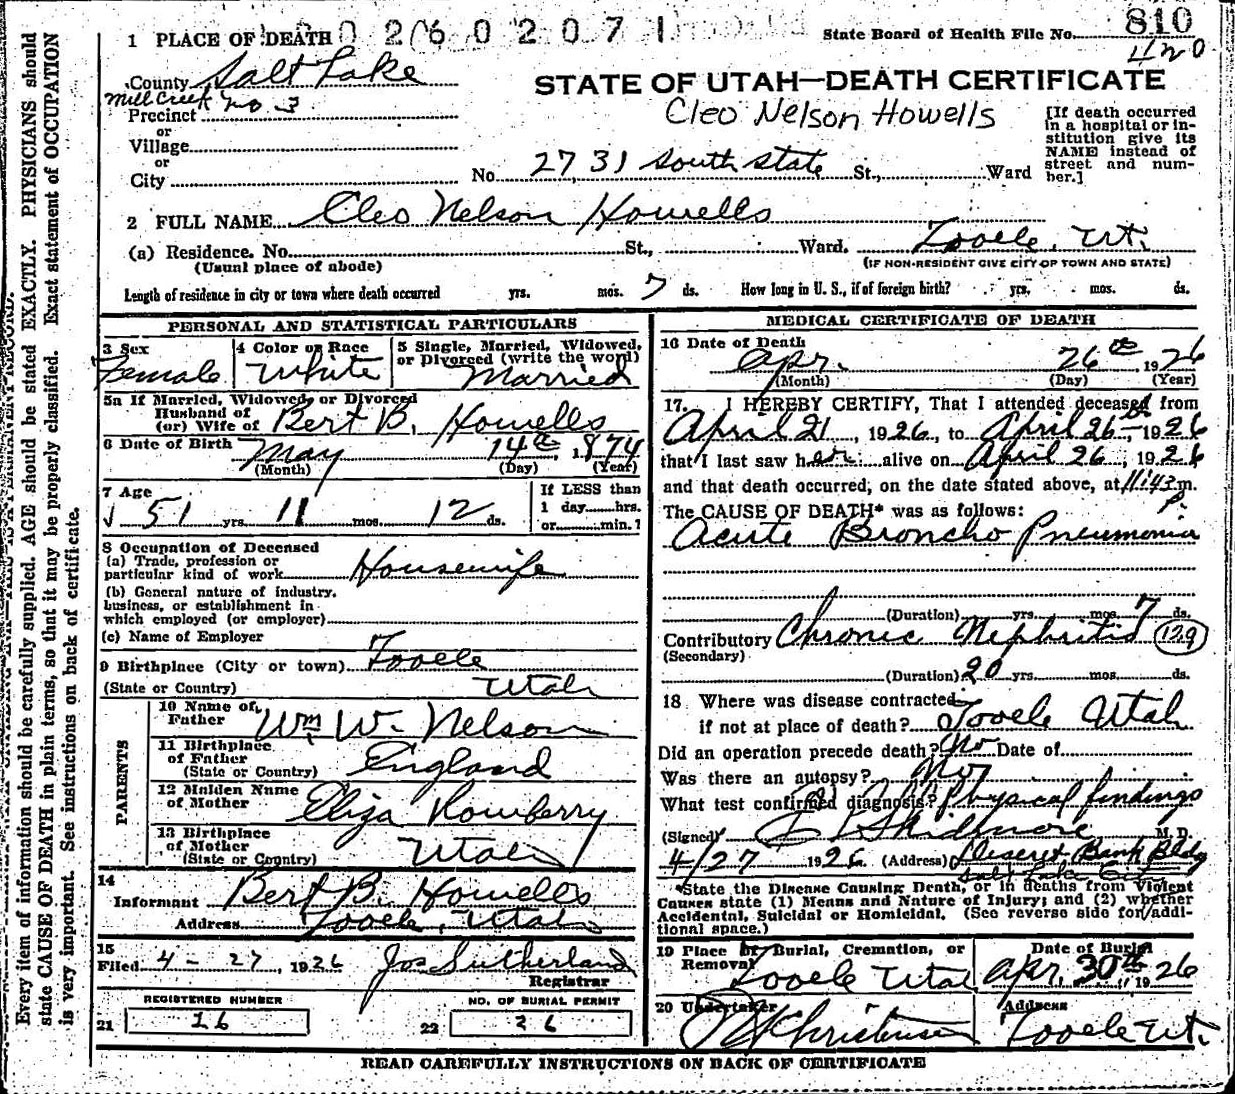 2602071
State Board of Health File No. 810
420
1 PLACE OF DEATH
County Salt Lake
STATE OF UTAH—DEATH CERTIFICATE
Mill Creek No. 3
Precinct
or
Village
or
City
Cleo Nelson Howells
[If death occurred in a hospital or institution give its NAME instead of street and number.]
No. 2731 South State St., Ward
2 FULL NAME Cleo Nelson Howells
(a) Residence. No. St., Ward. Tooele, Ut.
(Usual place of abode) (IF NON-RESIDENT GIVE CITY OR TOWN AND STATE)
Length of residence in city or town where death occurred yrs. mos. 7 ds. How long in U. S., if of foreign birth? yrs. mos. ds.
PERSONAL AND STATISTICAL PARTICULARS
3 Sex Female
4 Color or Race White
5 Single, Married, Widowed, or Divorced (write the word) Married
5a If Married, Widowed, or Divorced
Husband of
(or) Wife of Bert B. Howells
6 Date of Birth May 14th 1874
(Month) (Day) (Year)
7 Age 51 yrs. 11 mos. 12 ds.
If LESS than
1 day hrs.
or min. ?
8 Occupation of Deceased
(a) Trade, profession or
particular kind of work Housewife
(b) General nature of industry,
business, or establishment in
which employed (or employer)
(c) Name of Employer
9 Birthplace (City or town) Tooele
(State or Country) Utah
PARENTS
10 Name of Father Wm W. Nelson
11 Birthplace of Father (State or Country) England
12 Maiden Name of Mother Eliza Rowberry
13 Birthplace of Mother (State or Country) Utah
14
Informant Bert B. Howells
Address Tooele, Utah
15
Filed 4-27, 1926 Jos Sutherland
Registrar
REGISTERED NUMBER
21 16
NO. OF BURIAL PERMIT
22 26
MEDICAL CERTIFICATE OF DEATH
16 Date of Death
Apr. 26th 1926
(Month) (Day) (Year)
17. I HEREBY CERTIFY, That I attended deceased from
April 21, 1926, to April 26th, 1926
that I last saw her alive on April 26, 1926
and that death occurred, on the date stated above, at 11:43 P. m.
The CAUSE OF DEATH* was as follows:
Acute Broncho Pneumonia
(Duration) yrs. mos. 7 ds.
Contributory Chronic Nephritis 129
(Secondary)
(Duration) 20 yrs. mos. ds.
18 Where was disease contracted
if not at place of death? Tooele Utah
Did an operation precede death? No Date of
Was there an autopsy? No
What test confirmed diagnosis? Physical findings
(Signed) Skidmore M. D.
4/27 1926 (Address) Deseret Bank Bldg
Salt Lake City
*State the Disease Causing Death, or in deaths from Violent
Causes state (1) Means and Nature of Injury; and (2) whether
Accidental, Suicidal or Homicidal. (See reverse side for additional space.)
19 Place of Burial, Cremation, or Removal
Tooele Utah
Date of Burial
Apr. 30th 1926
20 Undertaker
Christensen
Address
Tooele Ut.
READ CAREFULLY INSTRUCTIONS ON BACK OF CERTIFICATE
Every item of information should be carefully supplied. AGE should be stated EXACTLY. PHYSICIANS should
state CAUSE OF DEATH in plain terms, so that it may be properly classified. Exact statement of OCCUPATION
is very important. See instructions on back of certificate.